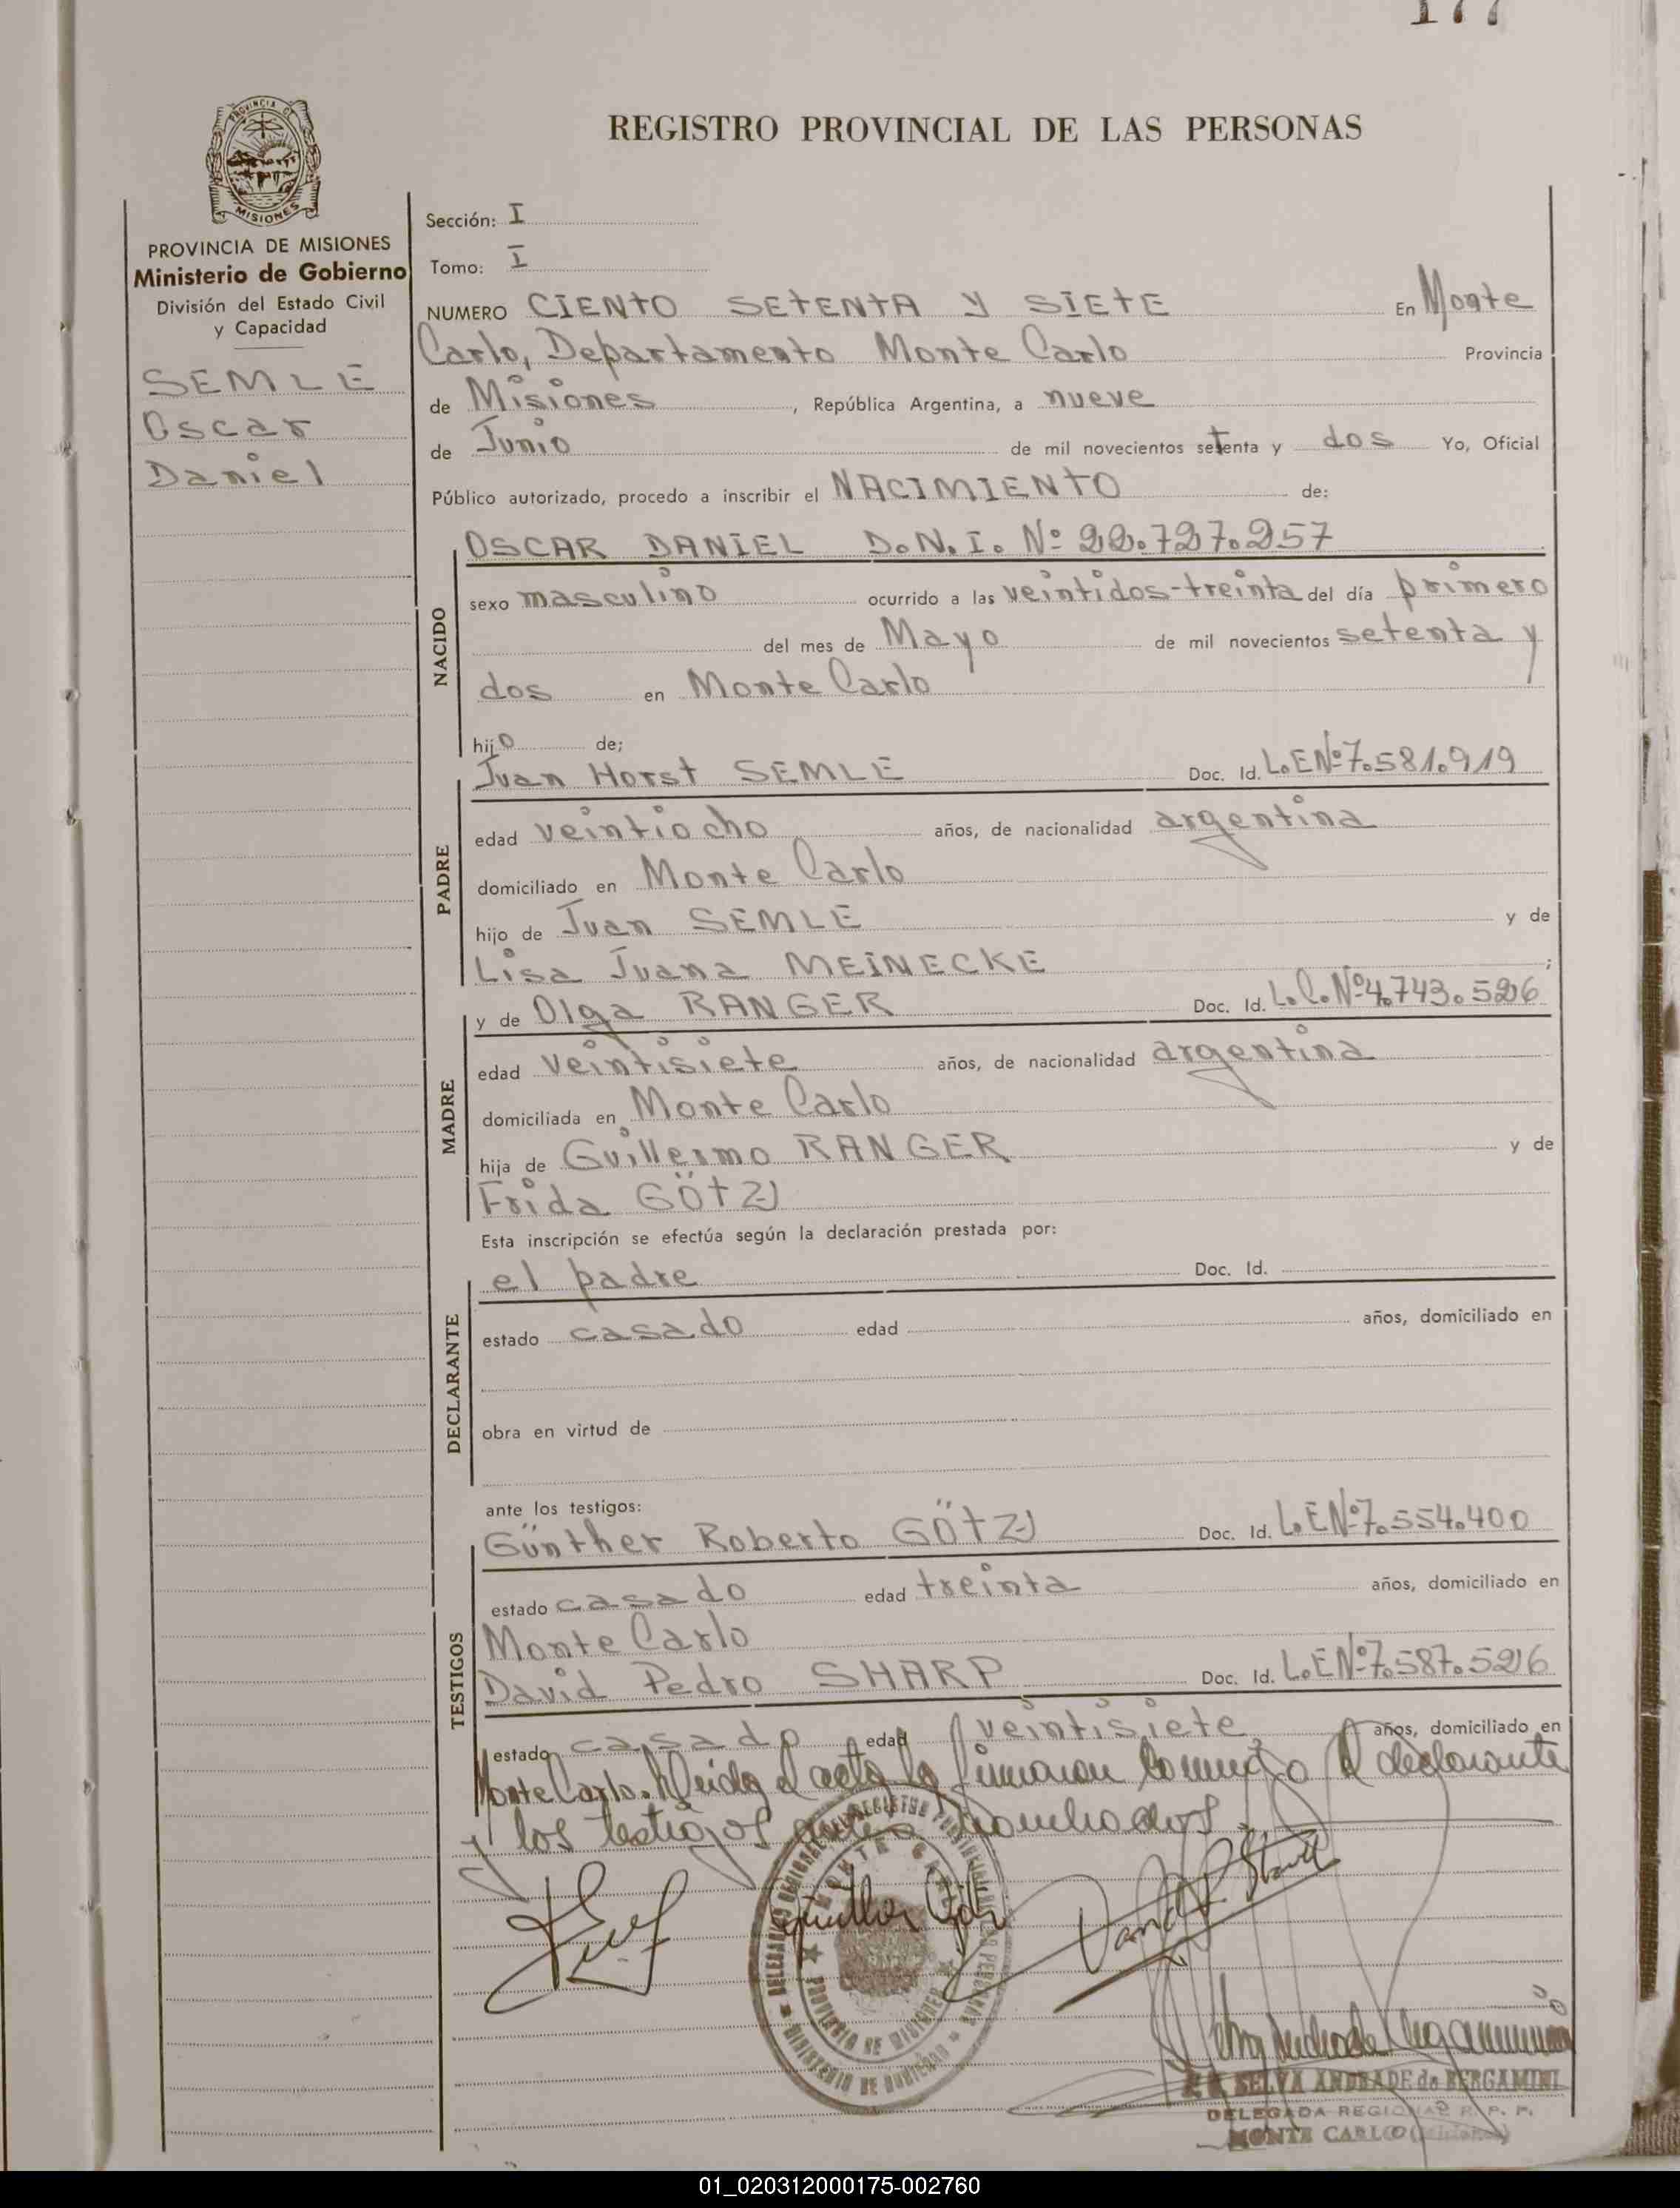 177
REGISTRO PROVINCIAL DE LAS PERSONAS
PROVINCIA DE MISIONES
Ministerio de Gobierno
División del Estado Civil
y Capacidad
SEMLE
Oscar
Daniel
Sección: I
Tomo: I
NUMERO CIENTO SETENTA Y SIETE En Monte
Carlo, Departamento Monte Carlo Provincia
de Misiones, República Argentina, a nueve
de Junio de mil novecientos setenta y dos Yo, Oficial
Público autorizado, procedo a inscribir el NACIMIENTO de:
NACIDO
OSCAR DANIEL D.N.I. Nº 22.727.257
sexo masculino ocurrido a las veintidos-treinta del día primero
del mes de Mayo de mil novecientos setenta y
dos en Monte Carlo
hijo de;
PADRE
Juan Horst SEMLE Doc. Id. L.E.Nº7.581.919
edad veintiocho años, de nacionalidad argentina
domiciliado en Monte Carlo
hijo de Juan SEMLE y de
Lisa Juana MEINECKE ;
MADRE
y de Olga RANGER Doc. Id. L.C.Nº4.743.526
edad veintisiete años, de nacionalidad argentina
domiciliada en Monte Carlo
hija de Guillermo RANGER y de
Frida GÖTZ
Esta inscripción se efectúa según la declaración prestada por:
DECLARANTE
el padre Doc. Id.
estado casado edad años, domiciliado en
obra en virtud de
ante los testigos:
TESTIGOS
Günther Roberto GÖTZ Doc. Id. L.E.Nº7.554.400
estado casado edad treinta años, domiciliado en
Monte Carlo
David Pedro SHARP Doc. Id. L.E.Nº7.587.526
estado casado edad veintisiete años, domiciliado en
Monte Carlo. Leida el acta la firmaron conmigo el declarante
y los testigos antes nombrados.
Günther Götz
MONTE CARLO
PROVINCIA DE MISIONES
MINISTERIO DE GOBIERNO
SELVA ANDRADE de BERGAMINI
DELEGADA REGIONAL R. P. P.
MONTE CARLO (Misiones)
01_020312000175-002760